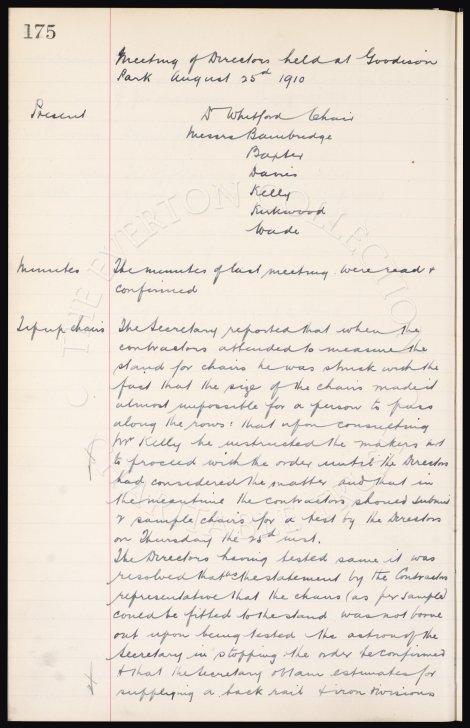 175
Meeting of Directors held at Goodison
Park August 25th 1910
Present
Dr Whitford Chair
Messrs Bainbridge
Baxter
Davies
Kelly
Kirkwood
Wade
Minutes
The minutes of last meeting were read &
confirmed
Tip up chairs
The Secretary reported that when the
contractors attended to measure the
stand for chairs he was struck with the
fact that the size of the chairs made it
almost impossible for a person to pass
along the rows: that upon consulting
Mr Kelly he instructed the makers not
to proceed with the order until the Directors
had considered the matter and that in
the meantime the contractors should submit
2 sample chairs for a test by the Directors
on Thursday the 25th inst.
The Directors having tested same it was
resolved that as the statement by the Contractors
representative that the chairs (as per sample)
could be fitted to the stand was not borne
out upon being tested the action of the
Secretary in stopping the order be confirmed
& that the Secretary obtain estimates for
supplying a back rail & iron divisions
THE EVERTON COLLECTION